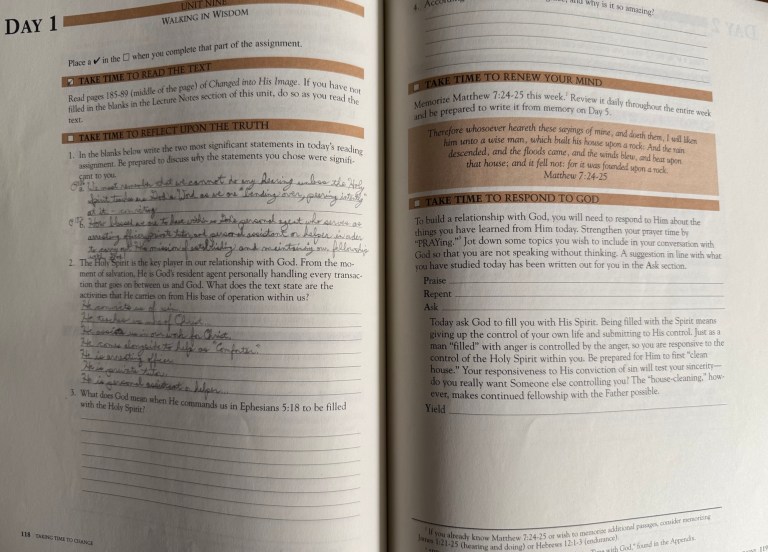 DAY 1
UNIT NINE
WALKING IN WISDOM
Place a ✓ in the □ when you complete that part of the assignment.
TAKE TIME TO READ THE TEXT
Read pages 185-89 (middle of the page) of Changed into His Image. If you have not
filled in the blanks in the Lecture Notes section of this unit, do so as you read the
text.
TAKE TIME TO REFLECT UPON THE TRUTH
1. In the blanks below write the two most significant statements in today's reading
assignment. Be prepared to discuss why the statements you chose were signifi-
cant to you.
must remember that we cannot do any hearing unless the Holy
Spirit teaches us God's Word as we are "bending over, peering intently"
at it
How blessed we are to have within us God's personal agent who serves as
arresting officer, private tutor, and personal assistant or helper in order
to carry out His mission of and maintaining our fellowship
2. The Holy Spirit is the key player in our relationship with God. From the mo-
ment of salvation, He is God's resident agent personally handling every transac-
tion that goes on between us and God. What does the text state are the
activities that He carries on from His base of operation within us?
He convicts us of sin.
He teaches us of Christ.
He us for Christ.
He comes alongside to help as "Comforter."
He is arresting officer
He is private tutor
He is personal assistant or helper
3. What does God mean when He commands us in Ephesians 5:18 to be filled
with the Holy Spirit?
118 TAKING TIME TO CHANGE
4. and why is it so amazing?
DAY 2
TAKE TIME TO RENEW YOUR MIND
Memorize Matthew 7:24-25 this week.¹ Review it daily throughout the entire week
and be prepared to write it from memory on Day 5.
Therefore whosoever heareth these sayings of mine, and doeth them, I will liken
him unto a wise man, which built his house upon a rock: And the rain
descended, and the floods came, and the winds blew, and beat upon
that house; and it fell not: for it was founded upon a rock.
Matthew 7:24-25
TAKE TIME TO RESPOND TO GOD
To build a relationship with God, you will need to respond to Him about the
things you have learned from Him today. Strengthen your prayer time by
"PRAYing." Jot down some topics you wish to include in your conversation with
God so that you are not speaking without thinking. A suggestion in line with what
you have studied today has been written out for you in the Ask section.
Praise
Repent
Ask
Today ask God to fill you with His Spirit. Being filled with the Spirit means
giving up the control of your own life and submitting to His control. Just as a
man "filled" with anger is controlled by the anger, so you are responsive to the
control of the Holy Spirit within you. Be prepared for Him to first "clean
house." Your responsiveness to His conviction of sin will test your sincerity—
do you really want Someone else controlling you? The "house-cleaning," how-
ever, makes continued fellowship with the Father possible.
Yield
¹ If you already know Matthew 7:24-25 or wish to memorize additional passages, consider memorizing
James 1:21-25 (hearing and doing) or Hebrews 12:1-3 (endurance).
with God," found in the Appendix.